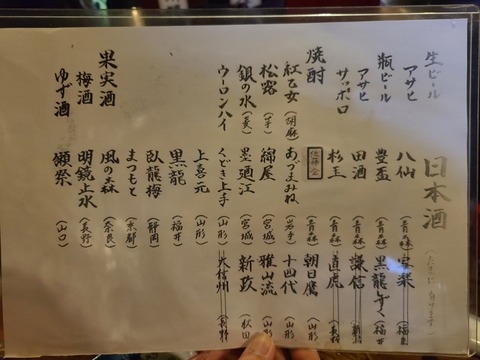 生ビール
アサヒ
瓶ビール
アサヒ
サッポロ
焼酎
紅乙女（胡麻）
松露（芋）
銀の水（麦）
ウーロンハイ
果実酒
梅酒
ゆず酒
日本酒
八仙（青森）
豊盃（青森）
田酒（青森）
杉玉（青森）
あづまみね（岩手）
綿屋（宮城）
墨廼江（宮城）
くどき上手（山形）
上喜元（山形）
黒龍（福井）
臥龍梅（静岡）
まつもと（京都）
風の森（奈良）
明鏡止水（長野）
獺祭（山口）
寫楽（福島）
黒龍（福井）
謙信（新潟）
直虎（長野）
朝日鷹（山形）
十四代（山形）
雅山流（山形）
新政（秋田）
大信州（長野）